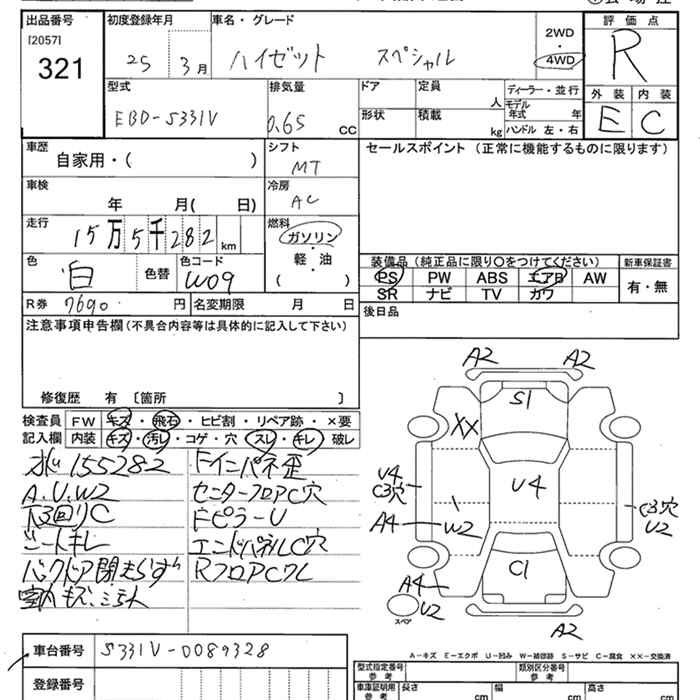 出品番号
[2057]
321
初度登録年月
25 3月
車名・グレード
ハイゼット スペシャル
2WD
・
4WD
評価点
R
外装 内装
E C
型式
EBD-S331V
排気量
0.65 CC
ドア
形状
定員 人
積載 kg
ディーラー・並行
モデル年式 年
ハンドル 左・右
車歴
自家用・( )
シフト
MT
セールスポイント (正常に機能するものに限ります)
車検
年 月( 日)
冷房
AC
走行
15万5千282km
燃料
ガソリン
・
軽・油
( )
色
白
色替
色コード
W09
装備品 (純正品に限り〇をつけてください)
PS PW ABS エアB AW
SR ナビ TV カワ
新車保証書
有・無
R券 7690 円 名変期限 月 日
後日品
注意事項申告欄 (不具合内容等は具体的に記入して下さい)
修復歴 有 〔箇所 〕
検査員 FW キズ・飛石・ヒビ割・リペア跡・×要
記入欄 内装 キズ・汚レ・コゲ・穴・スレ・キレ・破レ
155282
A.U.W2
下回リC
シートキレ
バックドア閉まらず
室内キズ、
ドインパネ歪
センターフロアC穴
ドピラーU
エンドパネルC穴
RフロアC
A2 A2
S1
XX
U4
C3穴
U4
C3穴
U2
A4
W2
C1
A4
U2
スペア
A2
A-キズ E-エクボ U-凹み W-補修跡 S-サビ C-腐食 ××-交換済
車台番号 S331V-0089328
登録番号
型式指定番号
参考
類別区分番号
参考
車庫証明用
参考
長さ cm
幅 cm
高さ cm